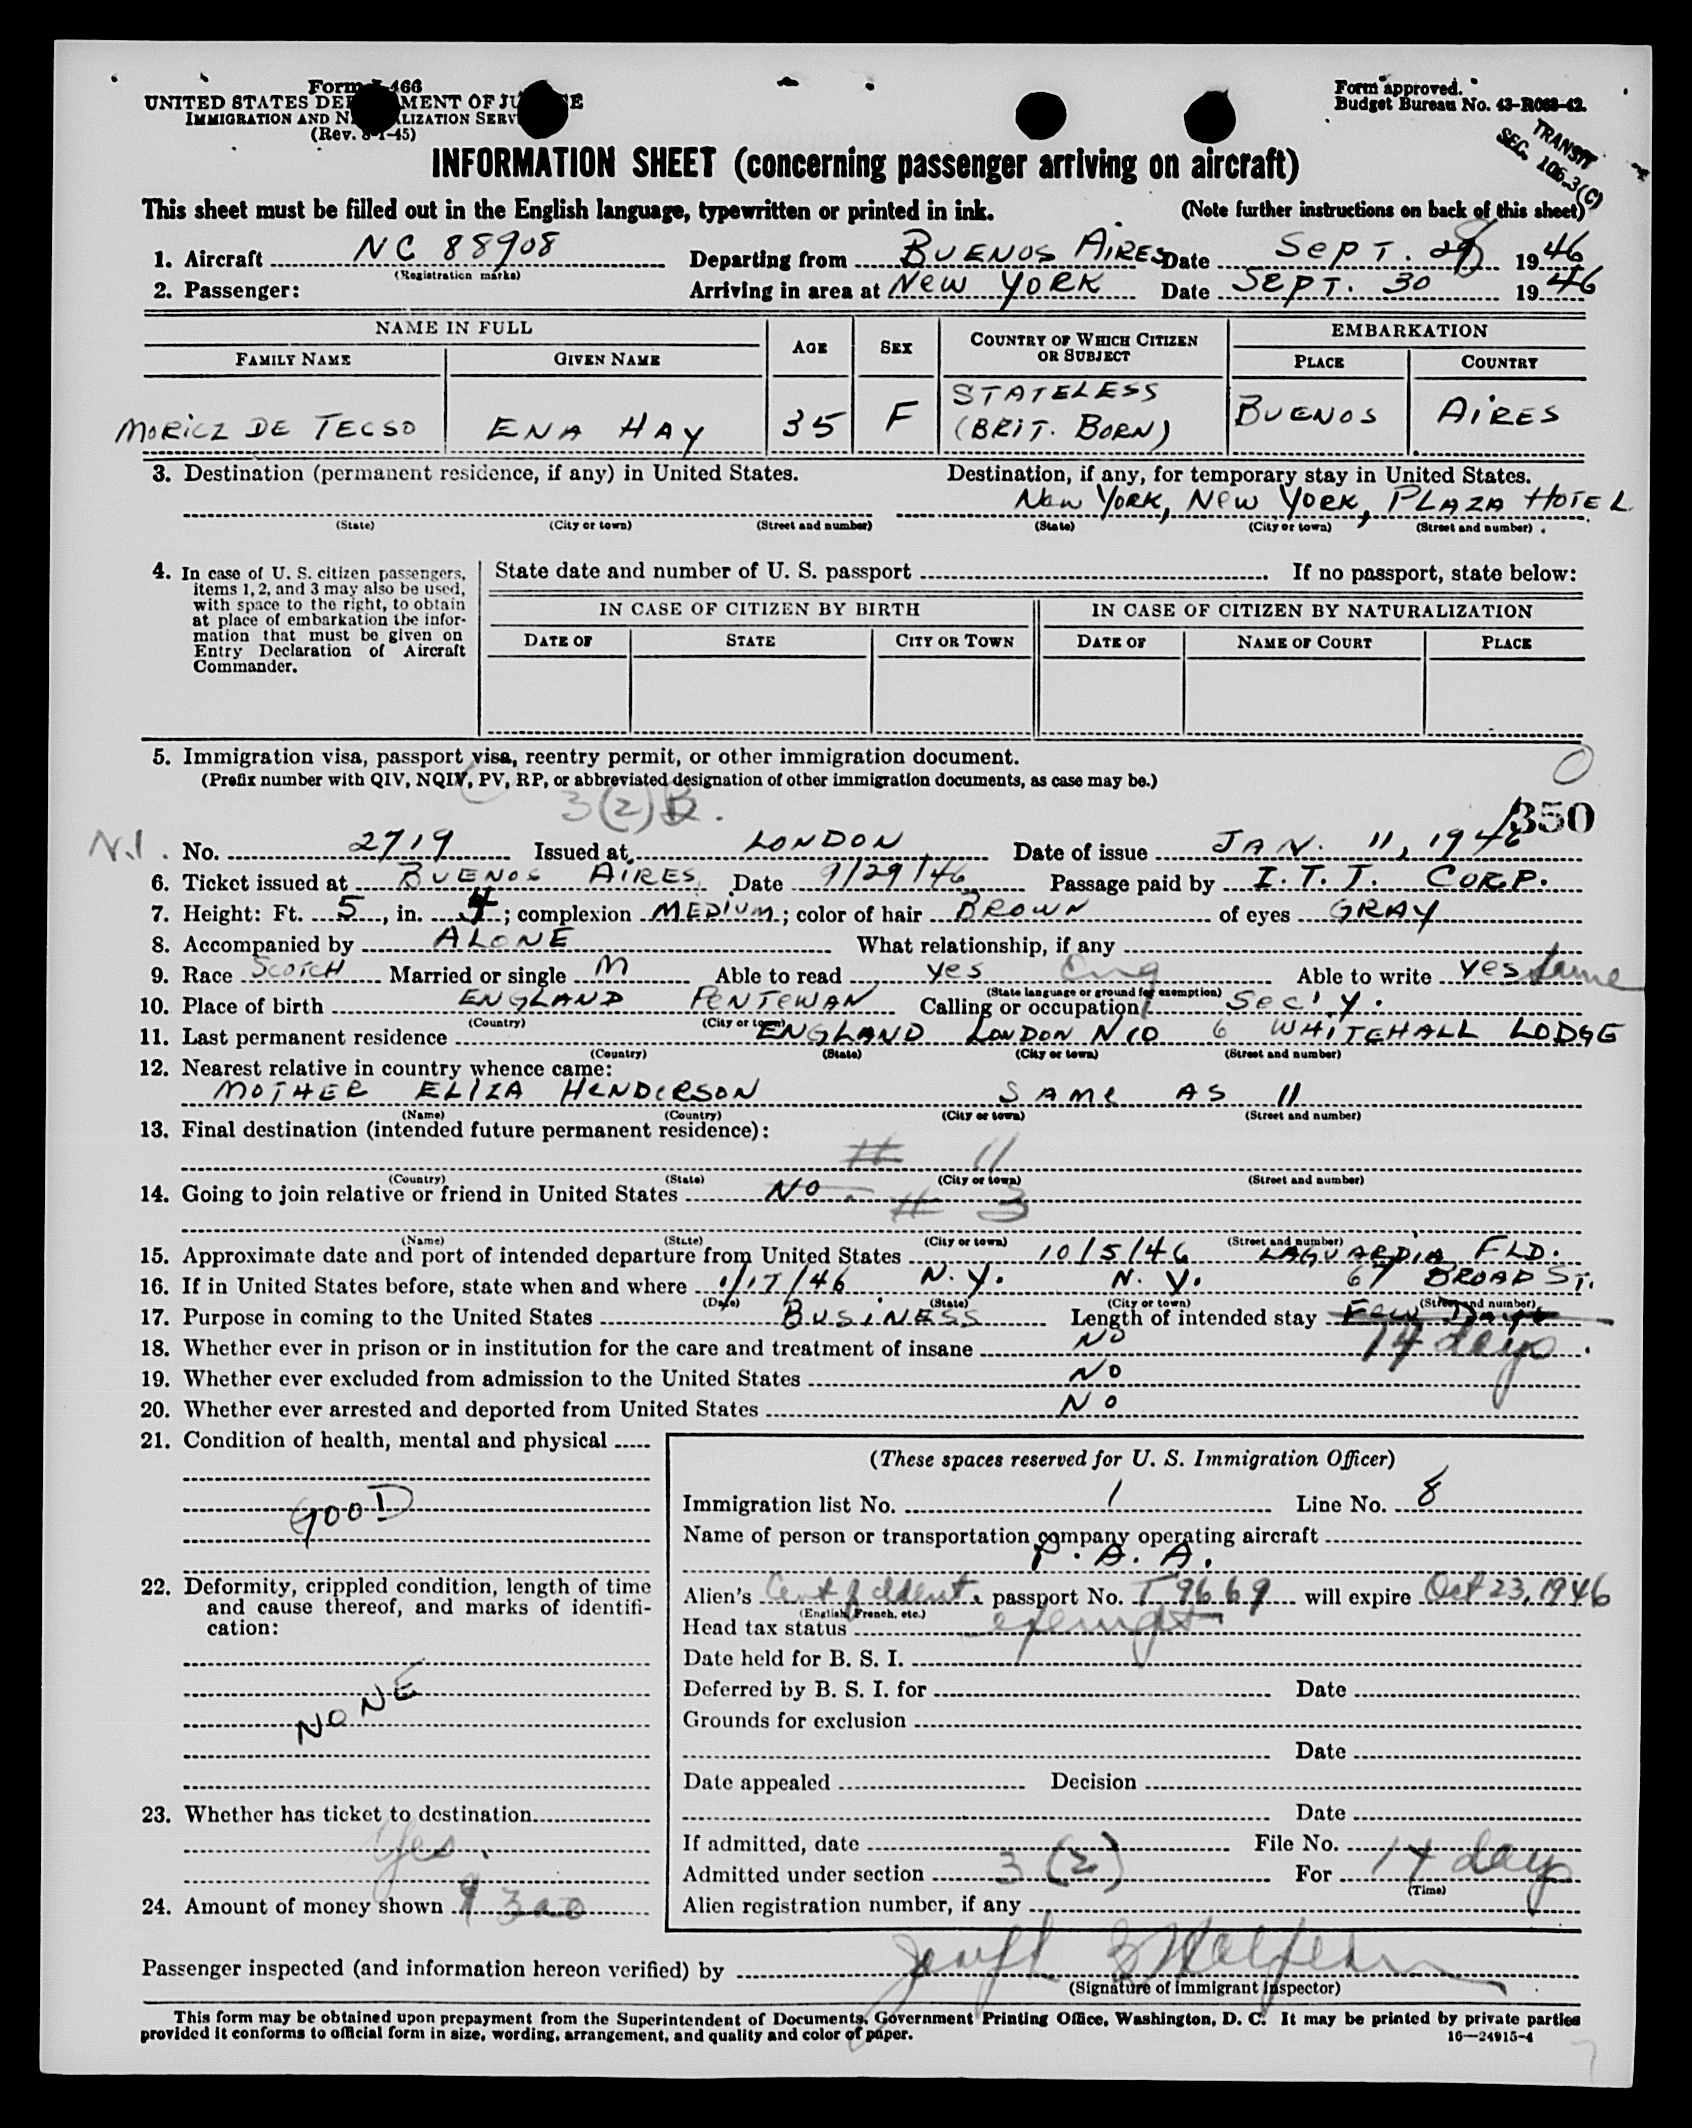 Form I-466
UNITED STATES DEPARTMENT OF JUSTICE
IMMIGRATION AND NATURALIZATION SERVICE
(Rev. 8-1-45)
Form approved.
Budget Bureau No. 43-R068-42.
TRANSIT
SEC. 106.3(C)
INFORMATION SHEET (concerning passenger arriving on aircraft)
This sheet must be filled out in the English language, typewritten or printed in ink. (Note further instructions on back of this sheet)
1. Aircraft NC 88908 Departing from BUENOS AIRES Date SEPT. 28 1946
(Registration marks)
2. Passenger: Arriving in area at NEW YORK Date SEPT. 30 1946
NAME IN FULL AGE SEX COUNTRY OF WHICH CITIZEN OR SUBJECT EMBARKATION
FAMILY NAME GIVEN NAME PLACE COUNTRY
MORICZ DE TECSO ENA HAY 35 F STATELESS (BRIT. BORN) BUENOS AIRES
3. Destination (permanent residence, if any) in United States. Destination, if any, for temporary stay in United States.
NEW YORK, NEW YORK, PLAZA HOTEL
(State) (City or town) (Street and number) (State) (City or town) (Street and number)
4. In case of U. S. citizen passengers, items 1, 2, and 3 may also be used, with space to the right, to obtain at place of embarkation the information that must be given on Entry Declaration of Aircraft Commander.
State date and number of U. S. passport If no passport, state below:
IN CASE OF CITIZEN BY BIRTH IN CASE OF CITIZEN BY NATURALIZATION
DATE OF STATE CITY OR TOWN DATE OF NAME OF COURT PLACE
5. Immigration visa, passport visa, reentry permit, or other immigration document.
(Prefix number with QIV, NQIV, PV, RP, or abbreviated designation of other immigration documents, as case may be.)
3(2)B.
350
N.I. No. 2719 Issued at LONDON Date of issue JAN. 11, 1946
6. Ticket issued at BUENOS AIRES Date 9/29/46 Passage paid by I.T.T. CORP.
7. Height: Ft. 5, in. 4; complexion MEDIUM; color of hair BROWN of eyes GRAY
8. Accompanied by ALONE What relationship, if any
9. Race SCOTCH Married or single M Able to read yes Eng Able to write yes same
(State language or ground for exemption)
10. Place of birth ENGLAND PENTEWAN Calling or occupation SEC'Y.
(Country) (City or town)
11. Last permanent residence ENGLAND LONDON N10 6 WHITEHALL LODGE
(Country) (State) (City or town) (Street and number)
12. Nearest relative in country whence came:
MOTHER ELIZA HENDERSON SAME AS 11
(Name) (Country) (City or town) (Street and number)
13. Final destination (intended future permanent residence):
# 11
(Country) (State) (City or town) (Street and number)
14. Going to join relative or friend in United States NO. # 3
(Name) (State) (City or town) (Street and number)
15. Approximate date and port of intended departure from United States 10/5/46 LAGUARDIA FLD.
16. If in United States before, state when and where 1/17/46 N.Y. N.Y. 67 BROAD ST.
(Date) (State) (City or town) (Street and number)
17. Purpose in coming to the United States BUSINESS Length of intended stay Few Days
14 days
18. Whether ever in prison or in institution for the care and treatment of insane NO
19. Whether ever excluded from admission to the United States NO
20. Whether ever arrested and deported from United States NO
21. Condition of health, mental and physical
GOOD
22. Deformity, crippled condition, length of time and cause thereof, and marks of identification:
NONE
23. Whether has ticket to destination
Yes.
24. Amount of money shown $300
(These spaces reserved for U. S. Immigration Officer)
Immigration list No. 1 Line No. 8
Name of person or transportation company operating aircraft
P.A.A.
Alien's Cert of Ident. passport No. T9669 will expire Oct 23, 1946
(English, French, etc.)
Head tax status exempt
Date held for B. S. I.
Deferred by B. S. I. for Date
Grounds for exclusion
Date
Date appealed Decision
Date
If admitted, date File No.
Admitted under section 3(2) For 14 days
(Time)
Alien registration number, if any
Passenger inspected (and information hereon verified) by Joseph
(Signature of immigrant inspector)
This form may be obtained upon prepayment from the Superintendent of Documents, Government Printing Office, Washington, D. C. It may be printed by private parties
provided it conforms to official form in size, wording, arrangement, and quality and color of paper. 16—24915-4